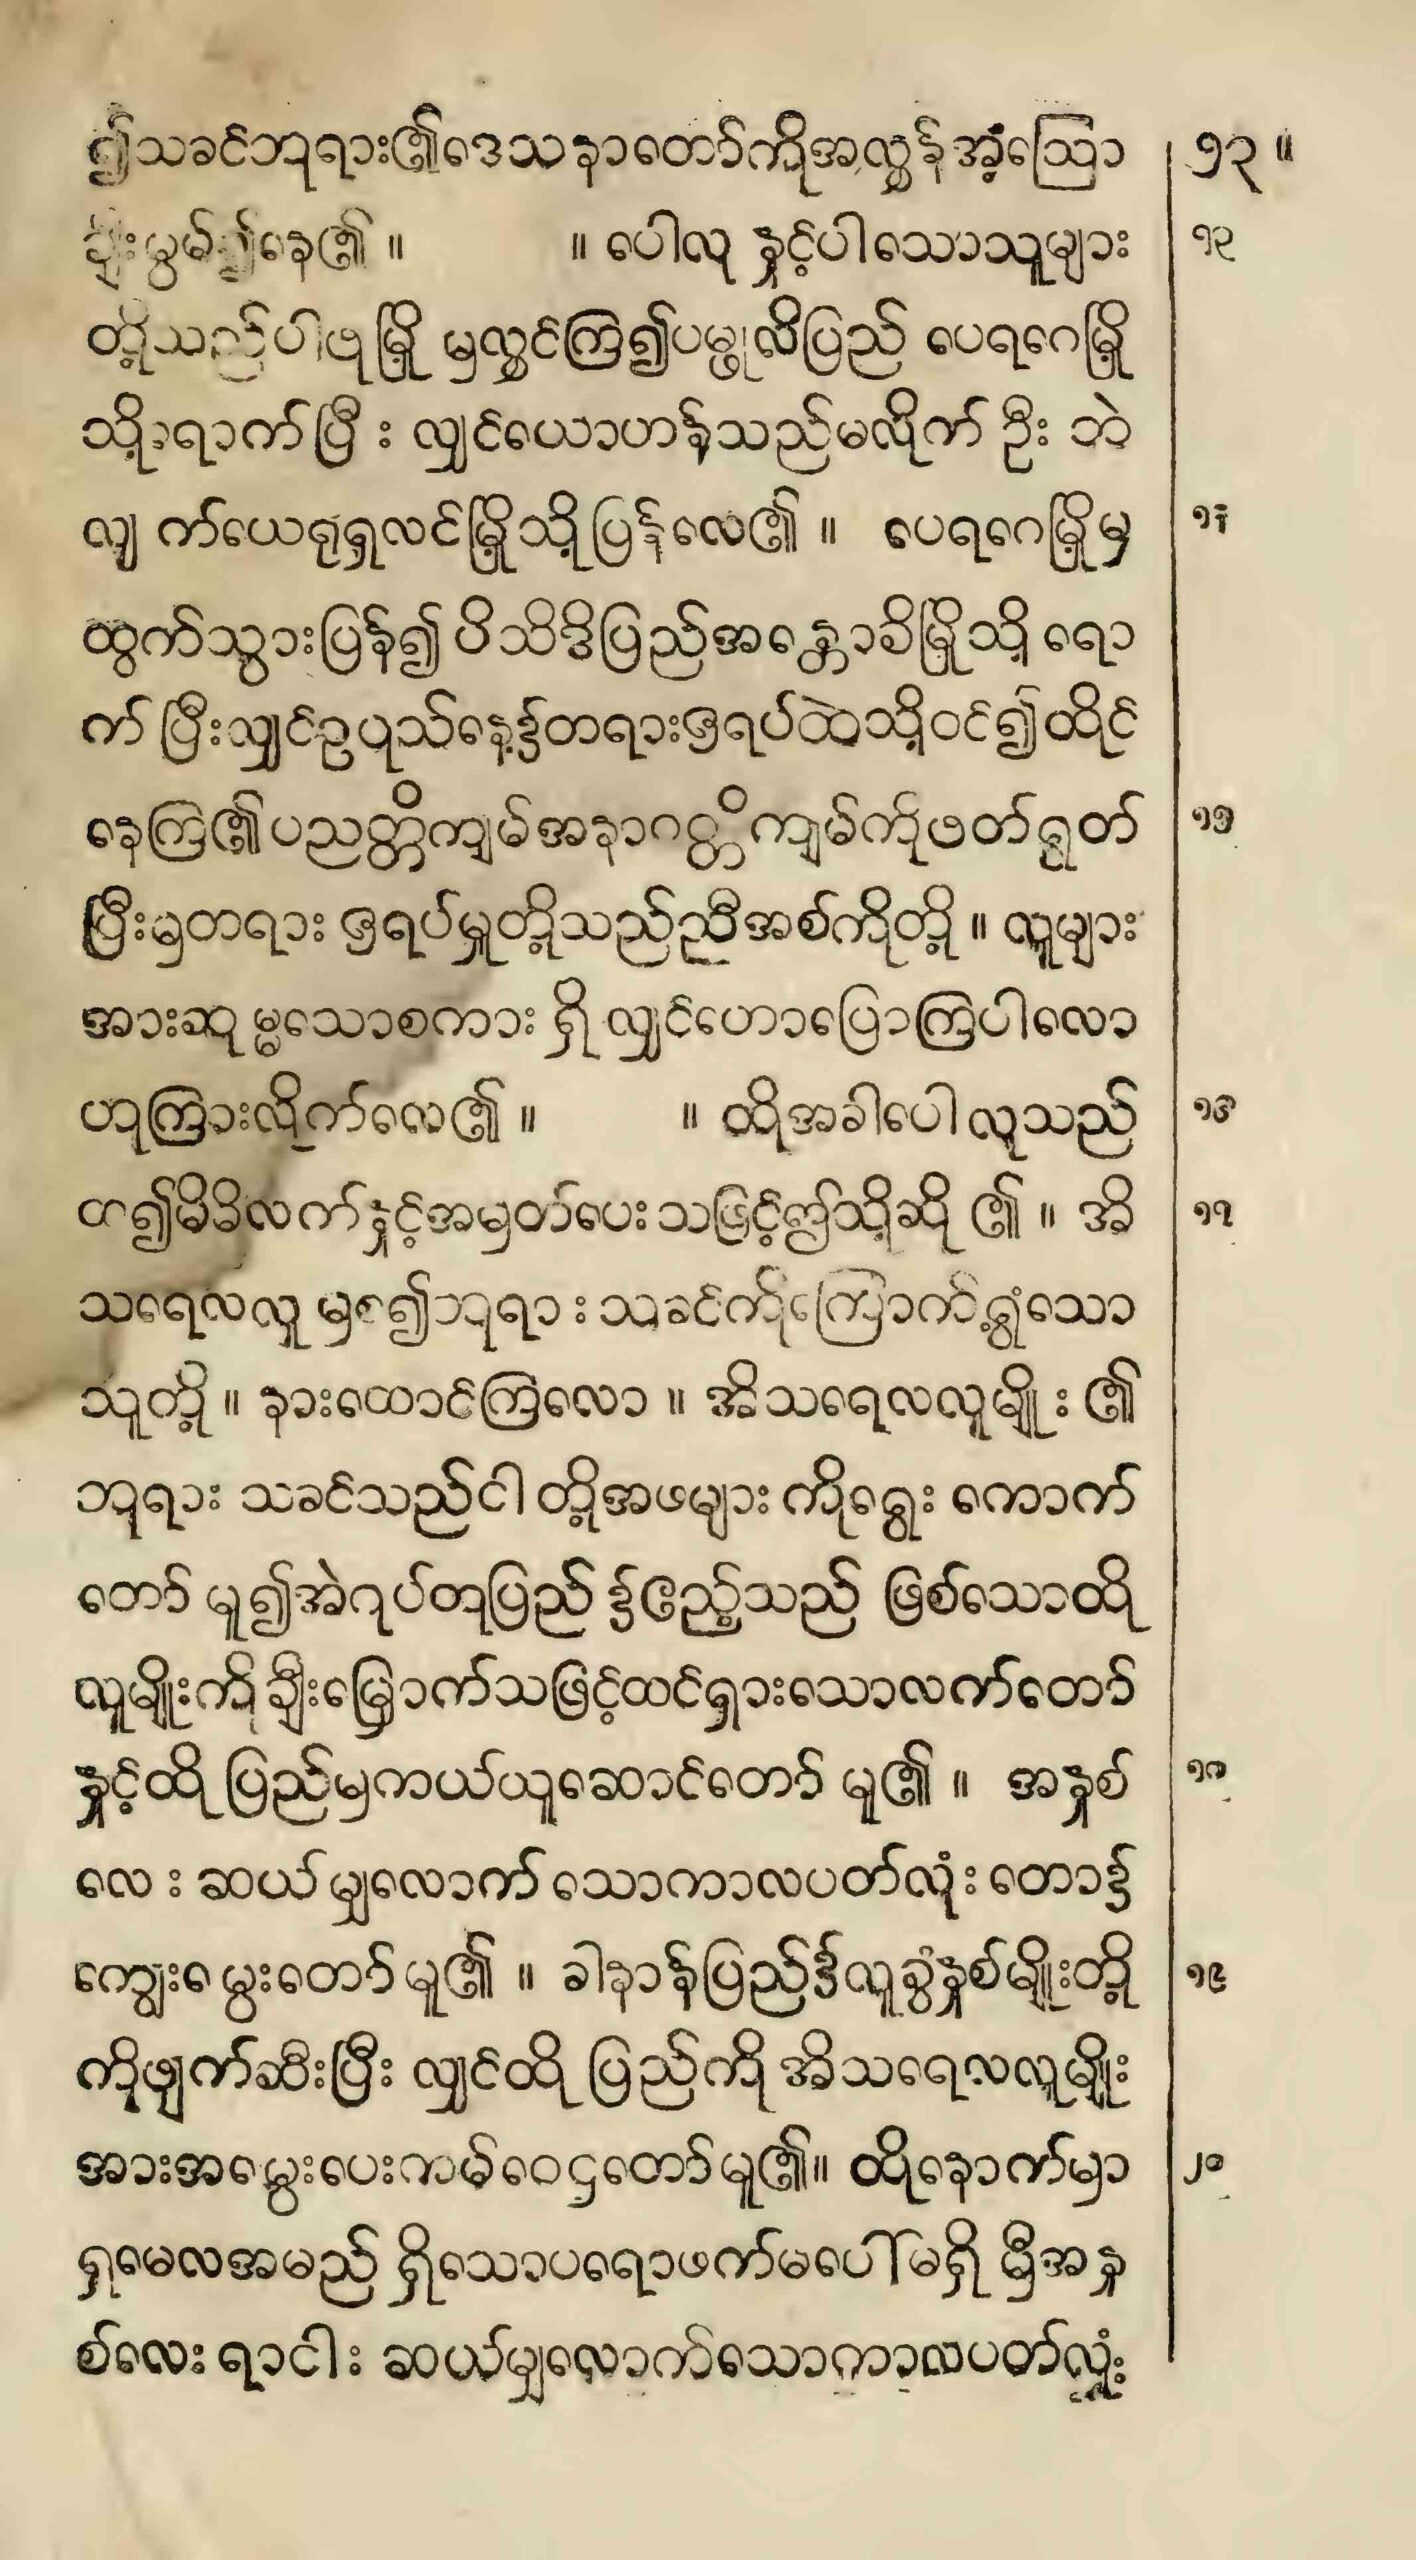 ၍သခင်ဘုရား၏ဒေသနာတော်ကိုအလွှန်အံ့ဩော ၁၃ ။
မွမ်၍နေ၏ ။ ။ ပေါလု နှင့်ပါသောသူများ ၁၃
တို့သည်ပါဖုမြို့ မှလွှင်ကြ၍ပမ္ဖုလိပြည် ပေရဂေမြို့
သို့ရောက်ပြီး လျှင်ယောဟန်သည်မလိုက် ဦး ဘဲ
လျှ က်ယေရုရှလင်မြို့သို့ပြန်လေ၏ ။ ပေရဂေမြို့မှ ၁၄
ထွက်သွားပြန်၍ ပိသိဒိပြည်အန္တောခိမြို့သို့ ရော
က် ပြီးလျှင်ဥပုသ်နေ့၌တရားဇရပ်ထဲသို့ဝင်၍ထိုင်
နေကြ၏ပညတ္တိကျမ်အနာဂတ္တိကျမ်ကိုဖတ်ရွတ် ၁၅
ပြီးမှတရား ဇရပ်မှူတို့သည်ညီအစ်ကိုတို့ ။ လူများ
အားဆုမ္မသောစကား ရှိ လျှင်ဟောပြောကြပါလော
ဟုကြားလိုက်လေ၏ ။ ။ ထိုအခါပေါ လုသည် ၁၆
ထ၍မိမိလက်နှင့်အမှတ်ပေး သဖြင့်ဤသို့ဆို ၏ ။ အိ ၁၇
သရေလလူ မှစ၍ဘုရား သခင်ကိုကြောက်ရွံ့သော
သူတို့ ။ နားထောင်ကြလော ။ အိသရေလလူမျိုး ၏
ဘုရား သခင်သည်ငါ တို့အဖများ ကိုရွေး ကောက်
တော် မူ၍အဲဂုပ်တုပြည် ၌ဧည့်သည် ဖြစ်သောထို
လူမျိုးကို ချီးမြှောက်သဖြင့်ထင်ရှားသောလက်တော်
နှင့်ထို ပြည်မှကယ်ယူဆောင်တော် မူ၏ ။ အနှစ် ၁၈
လေး ဆယ် မျှလောက် သောကာလပတ်လုံး တော၌
ကျွေးမွေးတော် မူ၏ ။ ခါနာန်ပြည်၌လူခွံနှစ်မျိုးတို့ ၁၉
ကိုဖျက်ဆီးပြီး လျှင်ထို ပြည်ကို အိသရေလလူမျိုး
အားအမွေးပေးကမ်ဝေဌတော်မူ၏။ ထိုနောက်မှာ ၂၀
ရှမေလအမည် ရှိသောပရောဖက်မပေါ်မရှိ မှီအနှ
စ်လေး ရာငါး ဆယ်မျှလောက်သောကာလပတ်လုံး